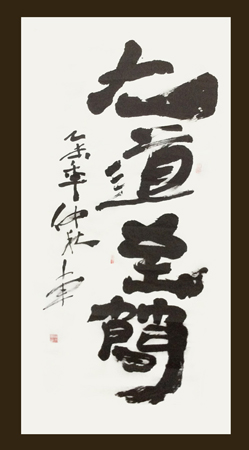 大道至簡
乙未年仲秋